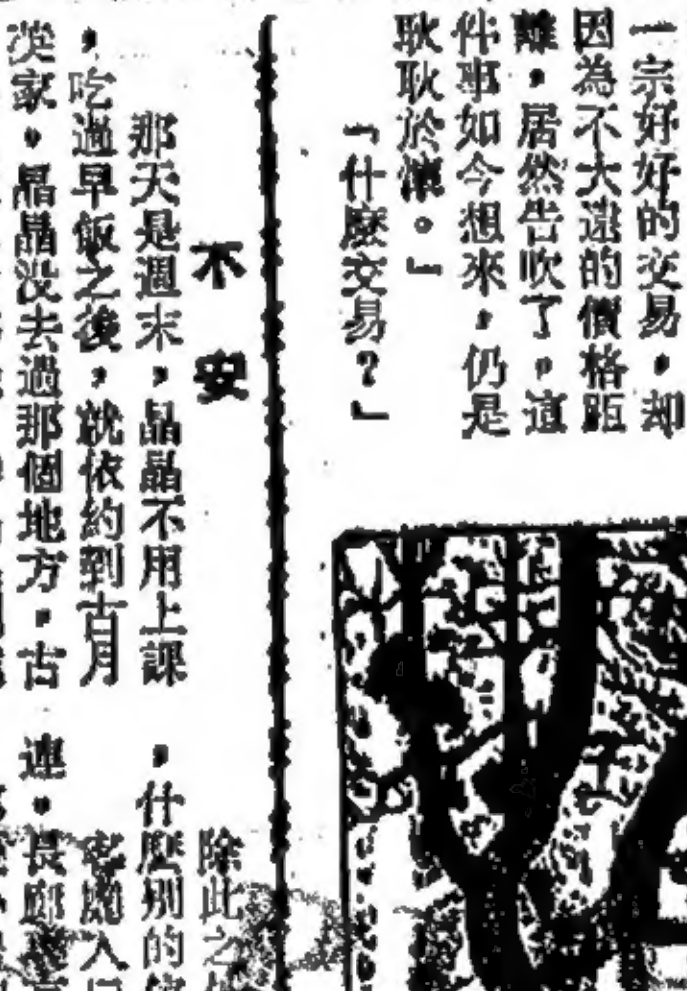 一宗好好的交易,却
因為不大遠的價格距
離,居然告吹了,這
件事如今想來,仍是
耿耿於懷。」
「什麼交易?」
不安
那天是週末,晶晶不用上課
,吃過早飯之後,就依約到古月
漢家,晶晶沒去過那個地方,古
除此之
,什麼別的
連,長廊